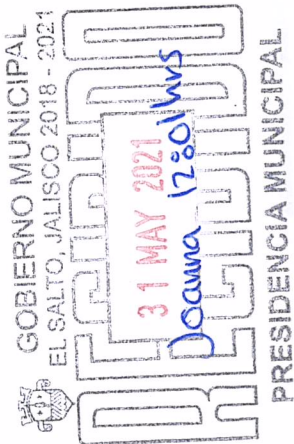 GOBIERNO MUNICIPAL
EL SALTO, JALISCO 2018 - 2021
RECIBIDO
31 MAY 2021
Joanna 12:01hrs
PRESIDENCIA MUNICIPAL